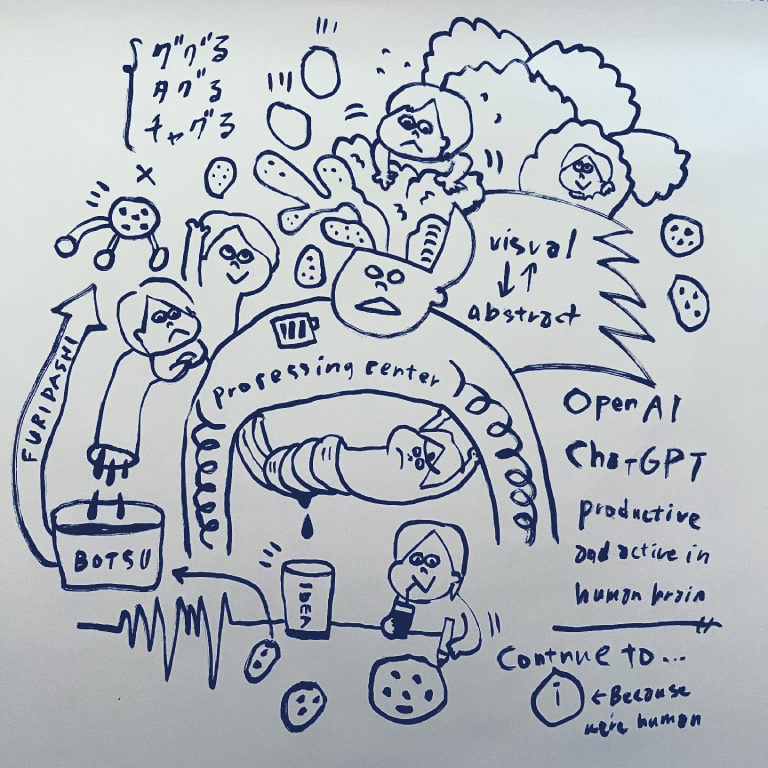 ググる
タグる
チャグる
visual
abstract
FURIDASHI
processing center
OpenAI
ChatGPT
productive
and active in
human brain
BOTSU
IDEA
Contnue to...
i ←Because
we're human